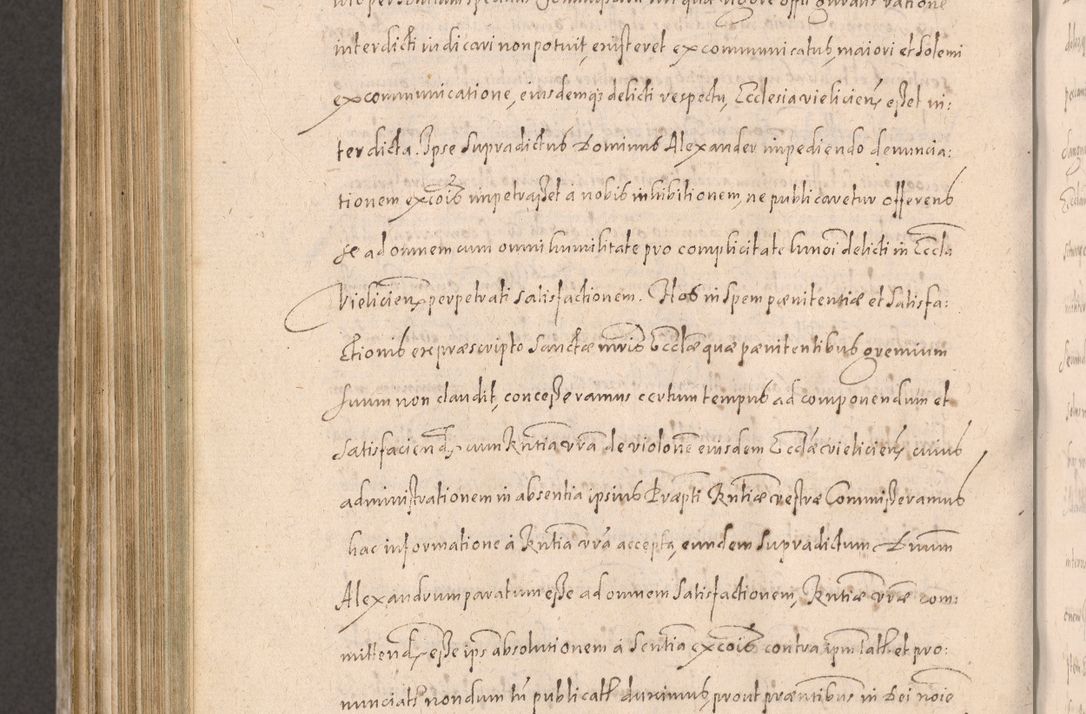 interdicti iudicari non potuit, existeret excommunicatus, maiori et Solemi
excommunicatione, eiusdemq; delicti respectu, Ecclesia vielicien̄ esset in:
terdicta. Ipse Supradictus Dominus Alexander impediendo denuncia:
tionem excōis impetrasset a nobis inhibitionem, ne publicaretur offerens
se ad omnem cum omni humilitate pro complicitate hmōi delicti in Eccla
Vielicien̄ perpetrati satisfactionem. Nos in spem pœnitentiæ et satisfa:
ctionis ex præscripto Sanctæ mr̄is Ecclæ quæ pœnitentibus gremium
suum non claudit, concesseramus certum tempus ad componendum et
satisfaciend. cum Rn̄tia vr̄a de violone eiusdem Ecclæ vielicien̄ cuius
administrationem in absentia ipsius Præpti Rn̄tiæ vestræ Commisseramus
hac informatione à Rn̄tia vr̄a accepta, eundem supradictum Dnum
Alexandrum paratum esse ad omnem satisfactionem, Rn̄tiæ vr̄æ com:
mittend. esse ips absolutionem a Sentia excōis contra ipm latt. et pro:
nunciatt nondum tn̄ publicatt duximus, prout præntibus in Dei noīe